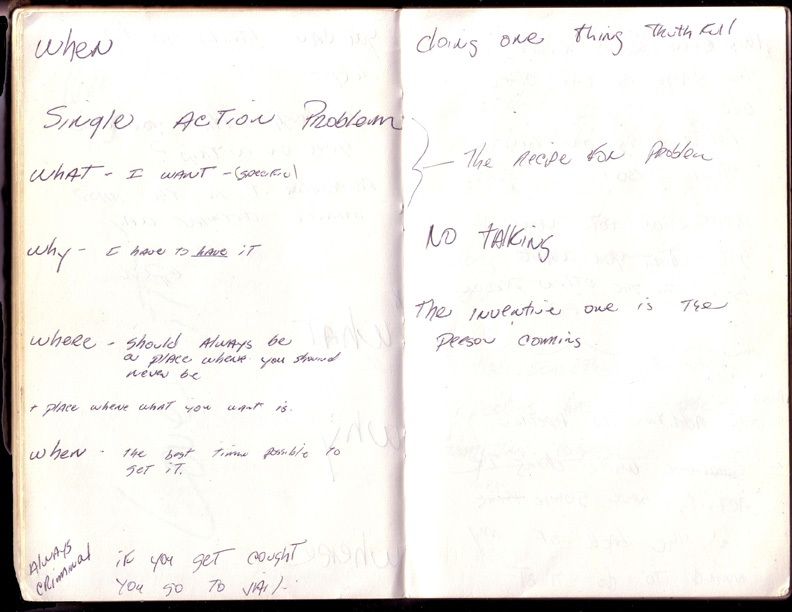 When
Single Action Problem
What - I want - (specific)
Why - I have to have it
Where - should always be
a place where you should
never be
+ place where what you want is.
When - the best time possible to
get it.
Always
criminal
if you get cought
you go to jail.
doing one thing truthfull
The recipe for problem
No talking
The inventive one is the
person comming